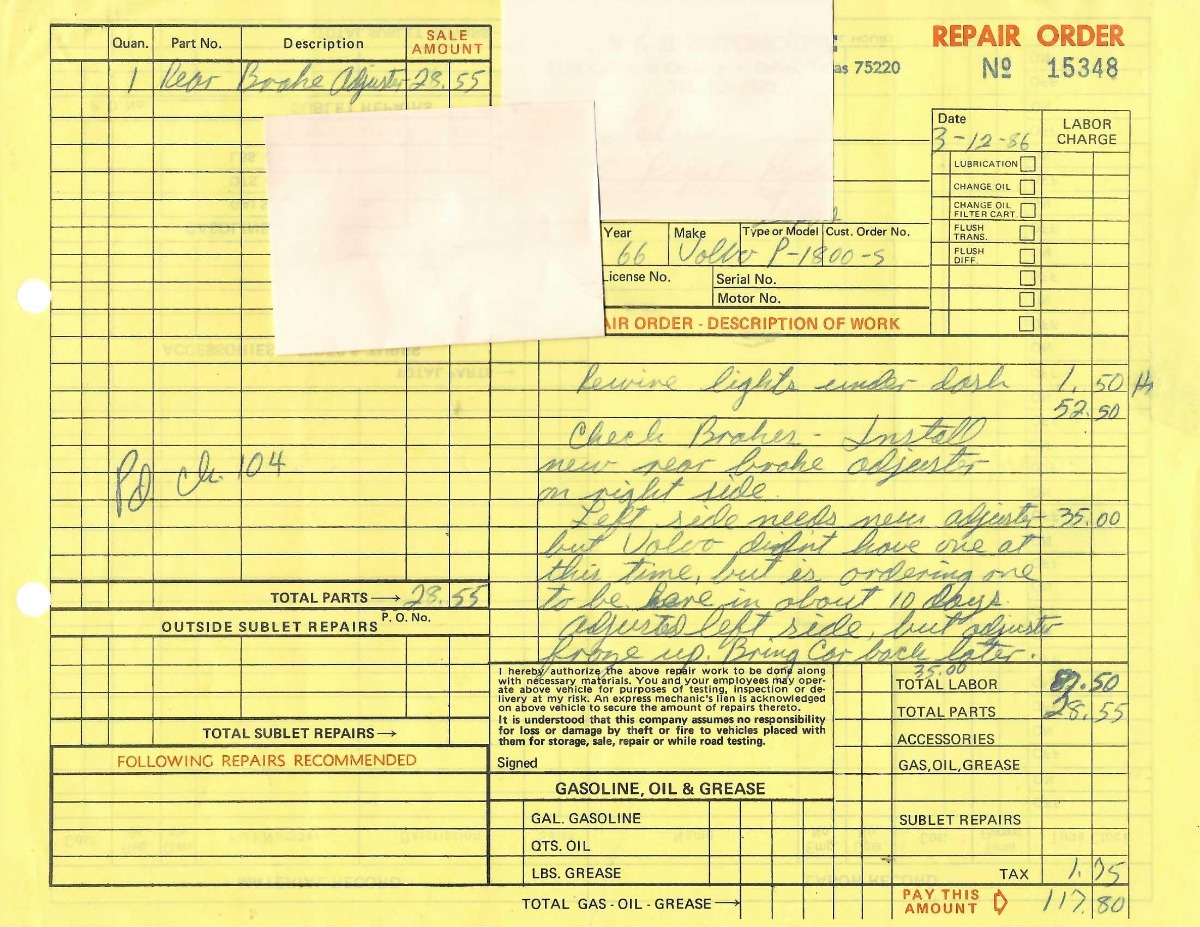 REPAIR ORDER
as 75220
Nº 15348
Quan. Part No. Description SALE AMOUNT
1 Rear Brake Adjuster 28.55
Date
3-12-86
LABOR CHARGE
LUBRICATION
CHANGE OIL
CHANGE OIL FILTER CART.
FLUSH TRANS.
FLUSH DIFF.
Year Make Type or Model Cust. Order No.
66 Volvo P-1800-S
License No. Serial No.
Motor No.
AIR ORDER - DESCRIPTION OF WORK
Rewire lights under dash 1.50 H
52.50
Check Brakes - Install
new rear brake adjuster
on right side.
Left side needs new adjuster 35.00
but Volvo didn't have one at
this time, but is ordering one
to be here in about 10 days.
Adjusted left side, but adjuster
froze up. Bring Car back later.
Pd ck. 104
TOTAL PARTS → 28.55
OUTSIDE SUBLET REPAIRS P. O. No.
TOTAL SUBLET REPAIRS →
FOLLOWING REPAIRS RECOMMENDED
I hereby authorize the above repair work to be done along
with necessary materials. You and your employees may oper-
ate above vehicle for purposes of testing, inspection or de-
livery at my risk. An express mechanic's lien is acknowledged
on above vehicle to secure the amount of repairs thereto.
It is understood that this company assumes no responsibility
for loss or damage by theft or fire to vehicles placed with
them for storage, sale, repair or while road testing.
Signed
GASOLINE, OIL & GREASE
GAL. GASOLINE
QTS. OIL
LBS. GREASE
TOTAL GAS - OIL - GREASE →
35.00
TOTAL LABOR 87.50
TOTAL PARTS 28.55
ACCESSORIES
GAS, OIL, GREASE
SUBLET REPAIRS
TAX 1.75
PAY THIS AMOUNT 117.80